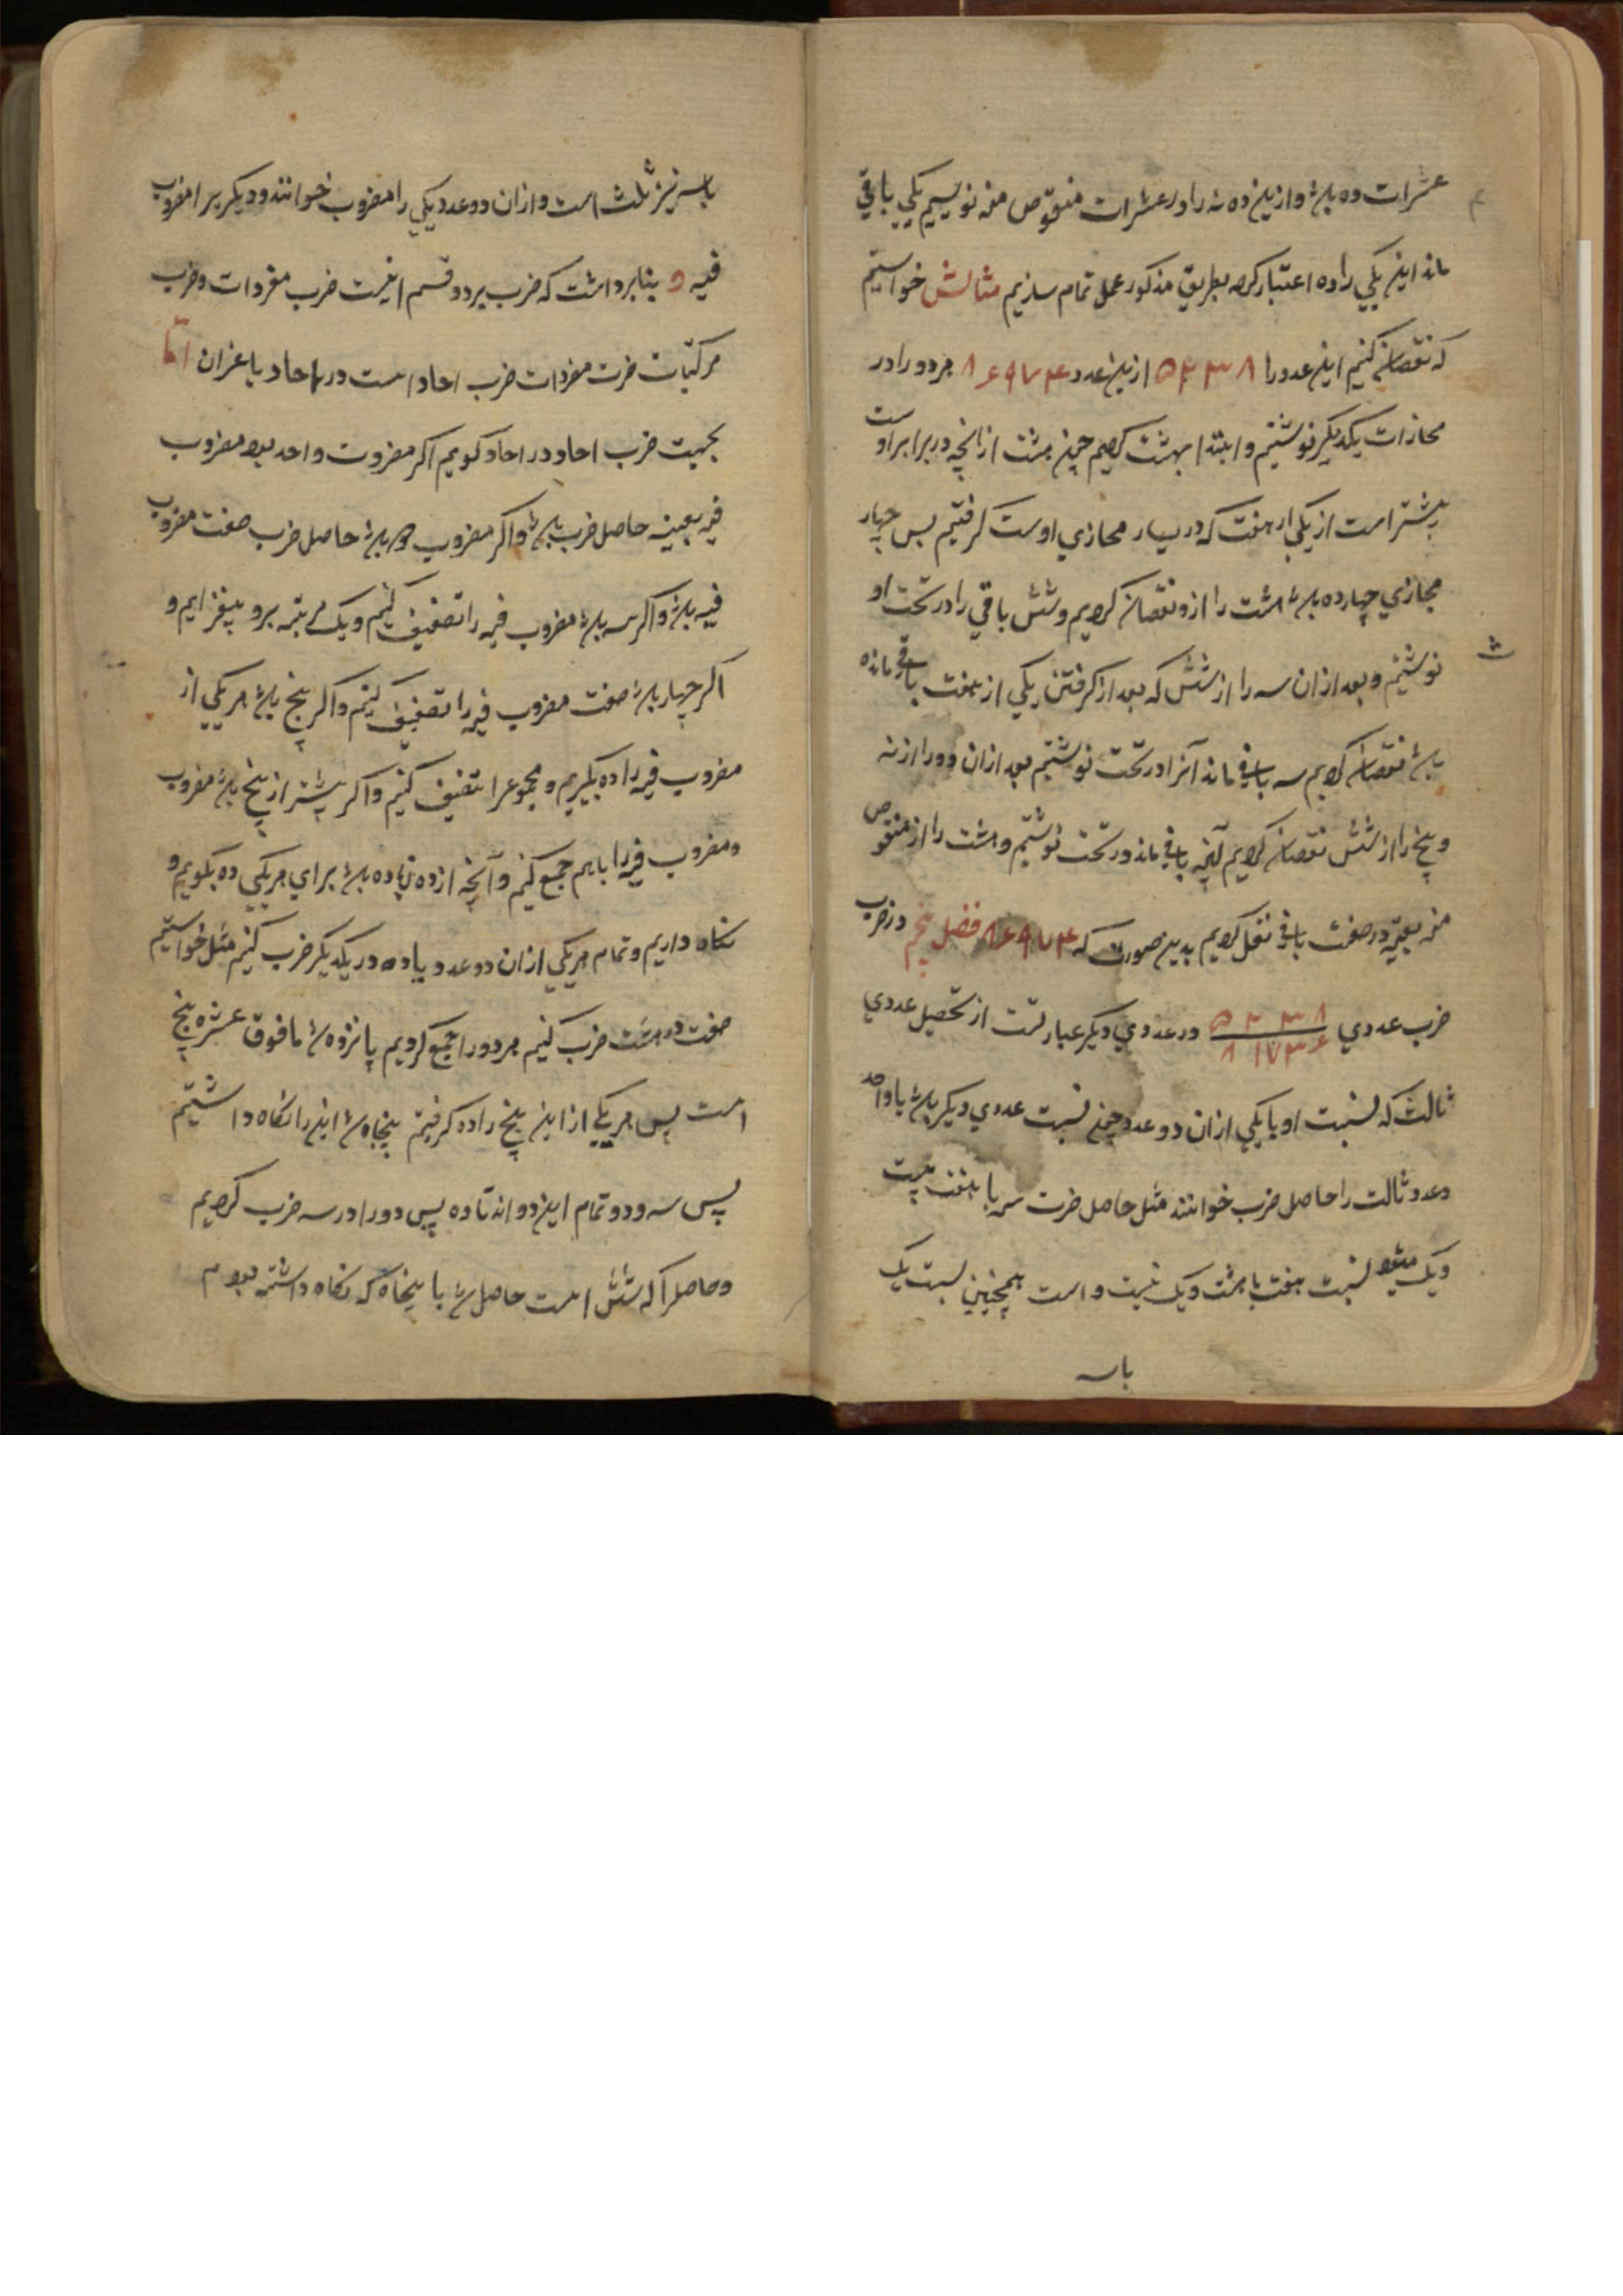 عشرات ده باشد و ازین ده نه را در عشرات منقوص منه نویسیم یکی باقی
ماند این یکی را ده اعتبار کرده بطریق مذکور عمل تمام سازیم مثالش خواستیم
که نقصان کنیم این عدد را ۵۲۳۸ ازین عدد ۸۶۹۷۴ هر دو را در
محازات یکدیگر نوشتیم و ابتدا بهشت کردیم چون هشت از آنچه در برابر اوست
بیشتر است از یکی از هفت که در یسار محازی اوست گرفتیم پس چهار
محازی چهارده باشد هشت را ازو نقصان کردیم و شش باقی را در تحت او
نوشتیم و بعد ازان سه را از شش که بعد از گرفتن یکی از هفت باقی مانده
باشد نقصان کردیم سه باقی ماند آنرا در تحت نوشتیم بعد ازان دو را از نه
و پنج را از شش نقصان کردیم آنچه باقی ماند در تحت نوشتیم و هشت را از منقوص
منه بعینه در صفت باقی نقل کردیم بدین صورت که ۸۶۹۷۴ فصل پنجم در ضرب
ضرب عددی ۵۲۳۸ ۸۱۷۳۶ در عددی دیگر عبارتست از تحصیل عددی
ثالث که نسبت او با یکی ازان دو عدد چون نسبت عددی دیگر باشد با واحد
و عدد ثالث را حاصل ضرب خوانند مثل حاصل ضرب سه با هفت بیست
و یک میشود نسبت هفت با هشت و یک نسبت و است همچنین نسبت یک
باسه
باسه نیز ثلث است و ازان دو عدد یکی را مضروب خوانند و دیگر برا مضروب
فیه و بنابرو اشت که ضرب بر دو قسم ضرب مفردات و ضرب
مرکبات ضرب مفردات ضرب احاد است در احاد یا غیر آن اما
بجهت ضرب احاد در احاد گویم اگر مضروب واحد بود مضروب
فیه بعینه حاصل ضرب باشد و اگر مضروب دو باشد حاصل ضرب ضعف مضروب
فیه باشد و اگر سه باشد مضروب فیه را تضعیف کنیم و یک مرتبه برو بیفزایم و
اگر چهار باشد ضعف مضروب فیه را تضعیف کنیم و اگر پنج باشد هر یکی از
مضروب فیه را ده بگیریم و مجموع را تنصیف کنیم و اگر بیشتر از پنج باشد مضروب
و مضروب فیه را باهم جمع کنیم و آنچه از ده زیاده باشد برای هر یکی ده بگویم و
نگاه داریم و تمام هر یکی ازان دو عدد با ده در یکدیگر ضرب کنیم مثل خواستیم
هفت در هشت ضرب کنیم هر دو را جمع کردیم پانزده شد ما فوق عشره پنج
است پس هر یکی از این پنج را ده گرفتیم پنجاه شد این را نگاه داشتیم
پس سه و دو تمام این دو اند تا ده پس دو را در سه ضرب کردیم
و حاصل را که شش است حاصل شد با پنجاه که نگاه داشته بودیم